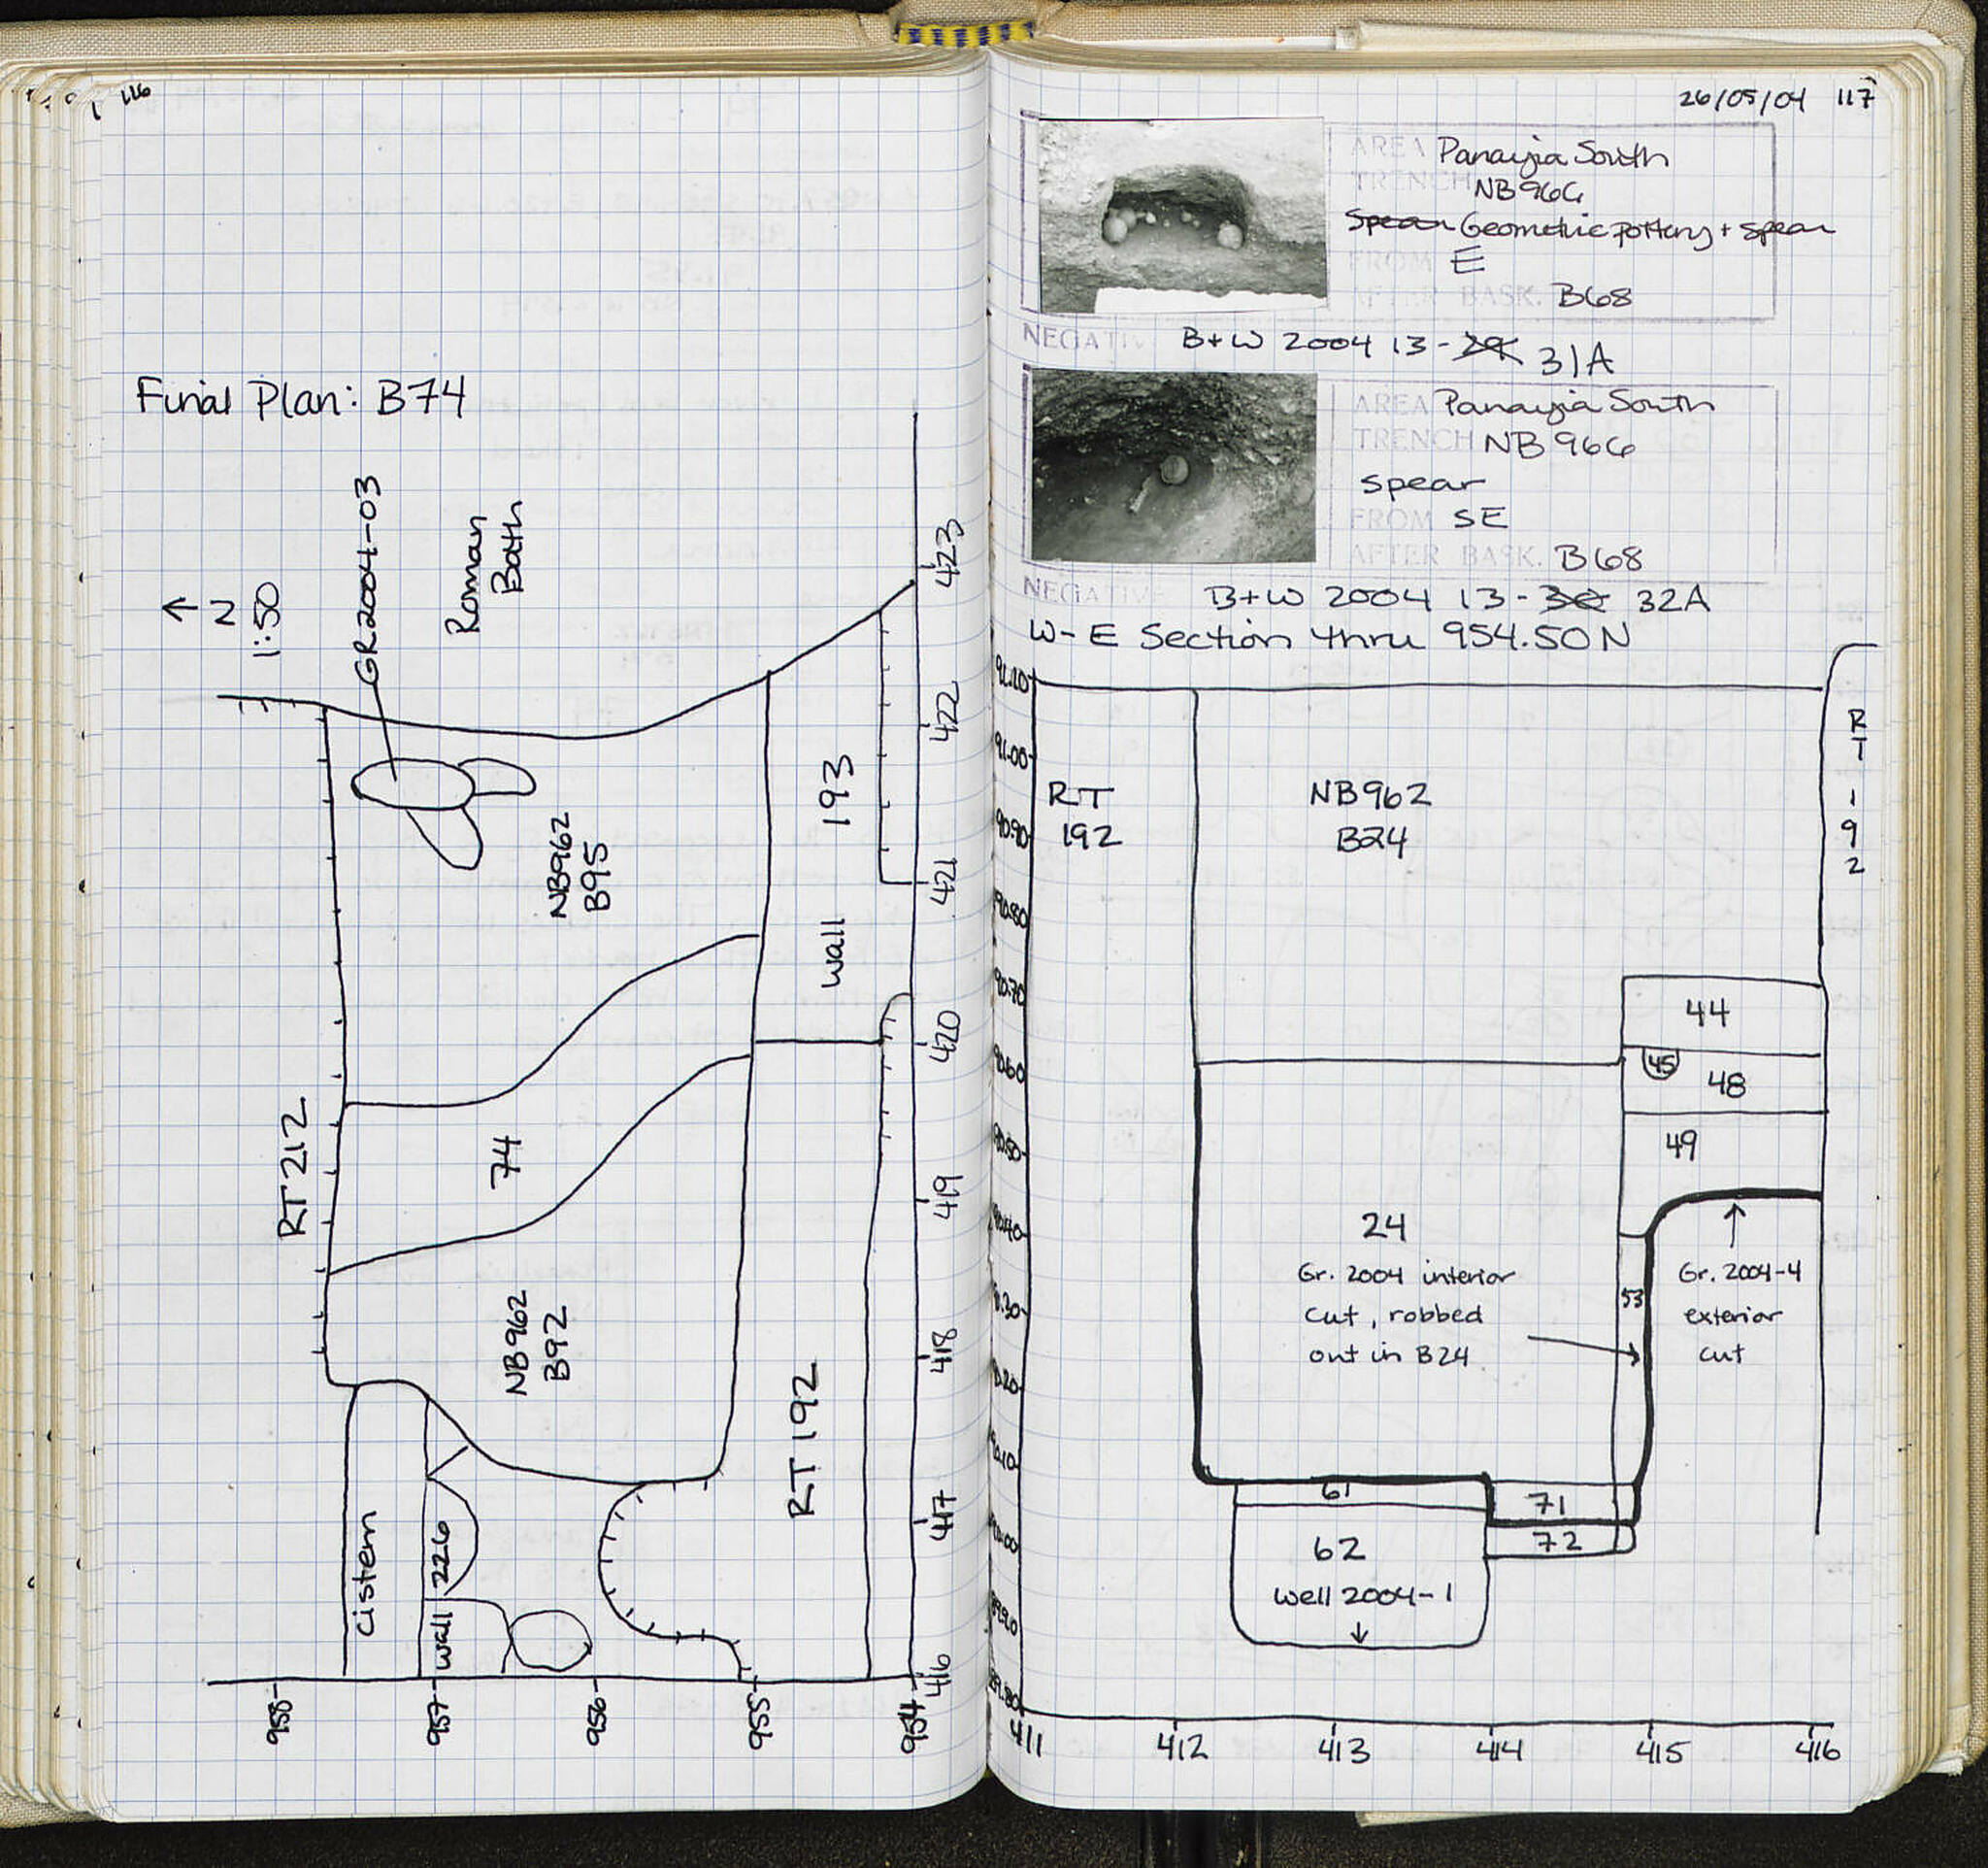 116
Final Plan: B74
← N
1:50
GR2004-03
Roman
Bath
NB962
B95
wall 193
RT212
74
NB962
B92
RT 192
Cistern
wall 226
423
422
421
420
419
418
417
416
958
957
956
955
954
26/05/04 117
AREA Panayia South
TRENCH NB966
Spear Geometric pottery + spear
FROM E
AFTER BASK. B68
NEGATIV B+W 2004 13-29 31A
AREA Panayia South
TRENCH NB966
spear
FROM SE
AFTER BASK. B68
NEGATIVE B+W 2004 13-30 32A
W-E Section thru 954.50N
91.10
91.00
90.90
90.80
90.70
90.60
90.50
90.40
90.30
90.20
90.10
90.00
89.90
89.80
RT
192
NB962
B24
RT 192
44
45
48
49
24
Gr. 2004 interior
cut, robbed
out in B24
53
Gr. 2004-4
exterior
cut
61
71
72
62
Well 2004-1
↓
411
412
413
414
415
416